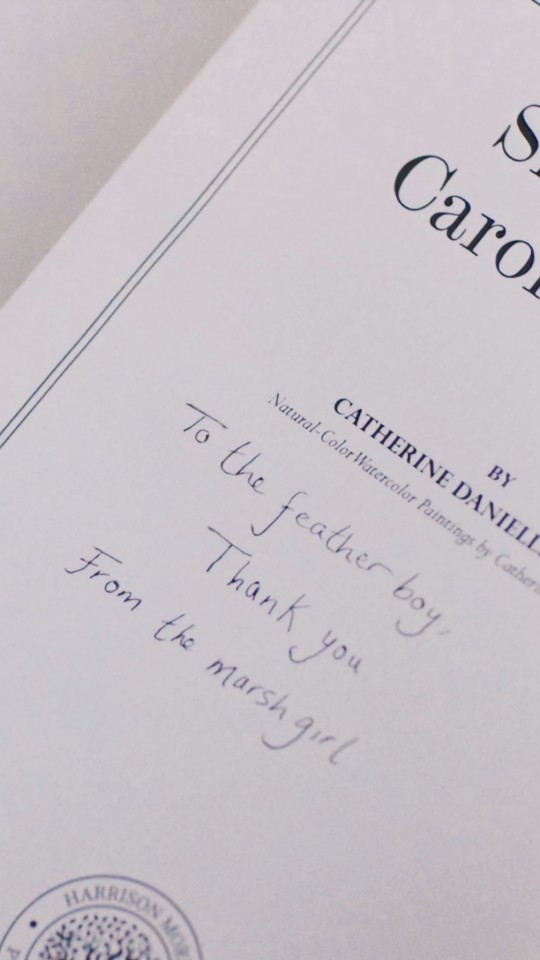 Carol
BY
CATHERINE DANIELL
Natural-Color Watercolor Paintings by Catherin
To the feather boy,
Thank you
From the marsh girl
HARRISON MOR